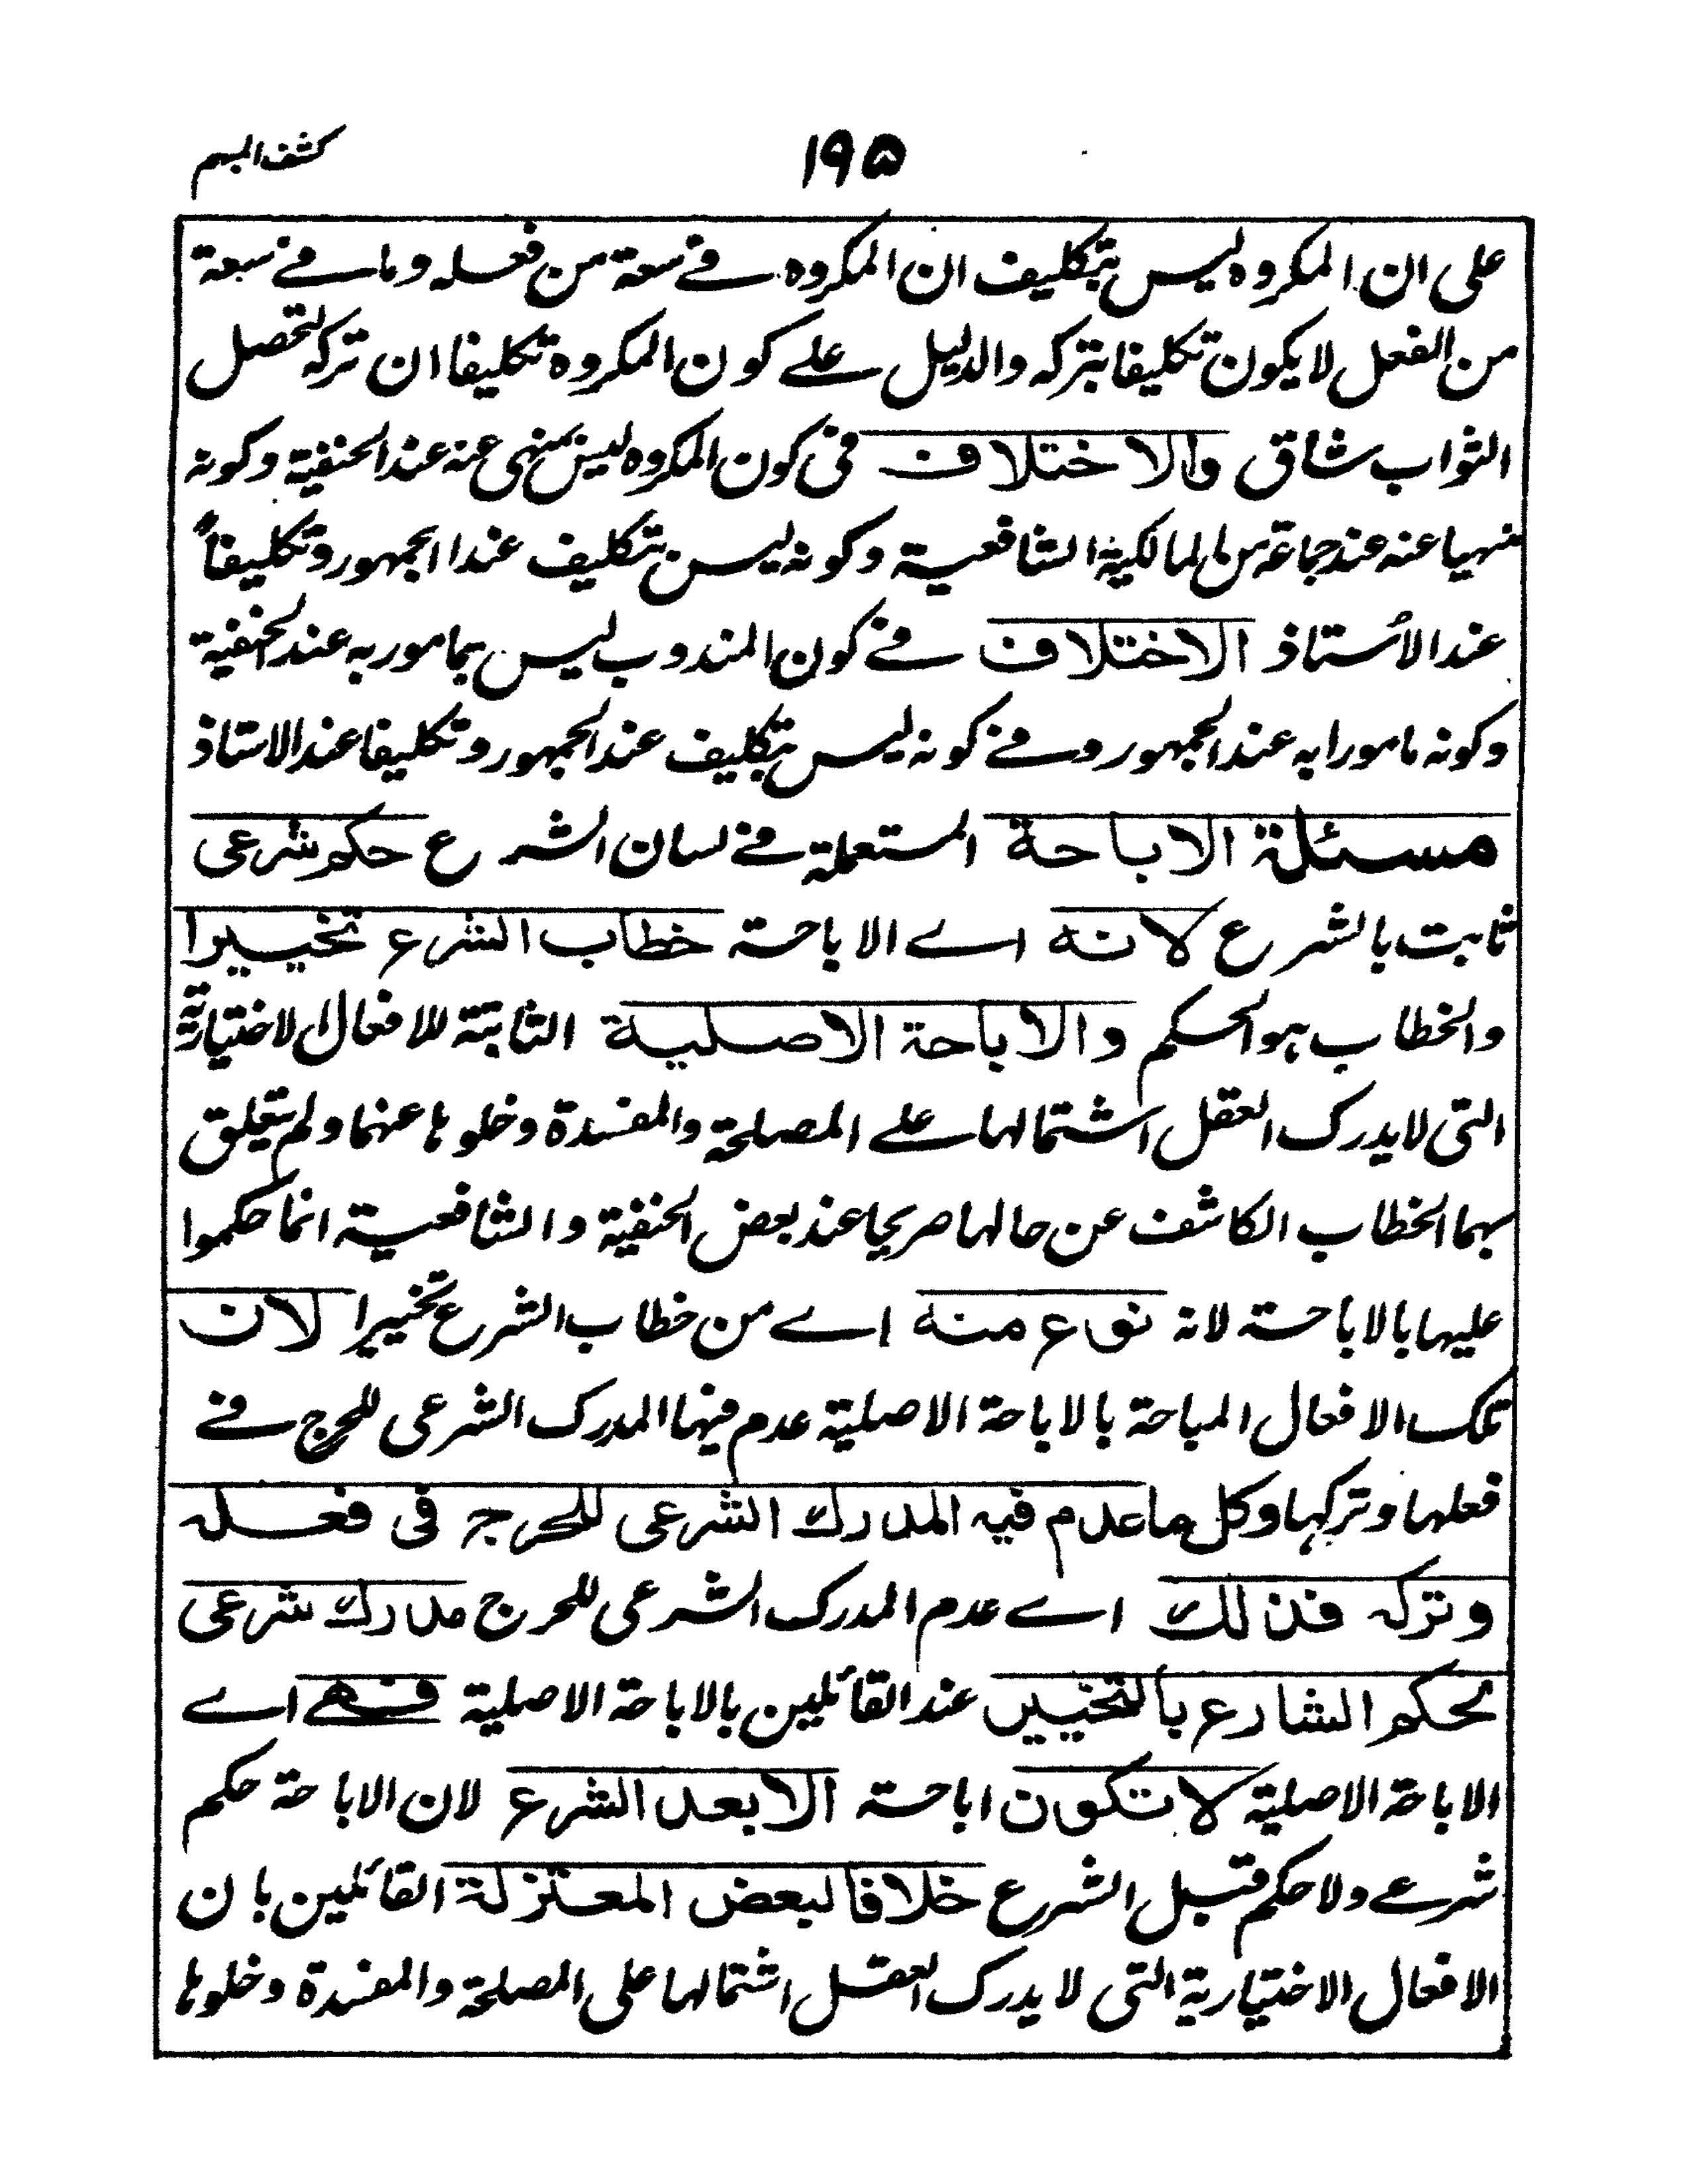 ۱۹۵
كشف المبهم
على ان المكروه ليس بتكليف ان المكروه فے سعة من فعله وما فے سعة
من الفعل لا يكون تكليفا بتركه والدليل علے كون المكروه تكليفا ان تركه لتحصل
الثواب شاق والاختلاف فى كون المكروه ليس بمنهى عنه عند الحنفية وكونه
منهيا عنه عند جماعة من المالكية الشافعية وكونه ليس بتكليف عند الجمهور وتكليفاً
عند الأستاذ الاختلاف فے كون المندوب ليس بمامور به عند الحنفية
وكونه مامورا به عند الجمهور وفے كونه ليس بتكليف عند الجمهور وتكليفا عند الاستاذ
مسئلة الاباحة المستعملة فے لسان الشرع حكم شرعى
ثابت بالشرع لانه اے الاباحة خطاب الشرع تخييرا
والخطاب هو الحكم والاباحة الاصلية الثابتة للافعال الاختيارية
التى لا يدرك العقل اشتمالها علے المصلحة والمفسدة وخلوها عنهما ولم يتعلق
بهما الخطاب الكاشف عن حالها صريحا عند بعض الحنفية والشافعية انما حكموا
عليها بالاباحة لانه نوع منه اے من خطاب الشرع تخييرا لان
تلك الافعال المباحة بالاباحة الاصلية عدم فيها المدرك الشرعى للحرج فے
فعلها وتركها وكل ما عدم فيه المدرك الشرعى للحرج فى فعله
وتركه فذلك اے عدم المدرك الشرعى للحرج مدرك شرعى
لحكم الشارع بالتخيير عند القائلين بالاباحة الاصلية فهے اے
الاباحة الاصلية لا تكون اباحة الا بعد الشرع لان الاباحة حكم
شرعے ولا حكم قبل الشرع خلافا لبعض المعتزلة القائلين بان
الافعال الاختيارية التى لا يدرك العقل اشتمالها على المصلحة والمفسدة وخلوها